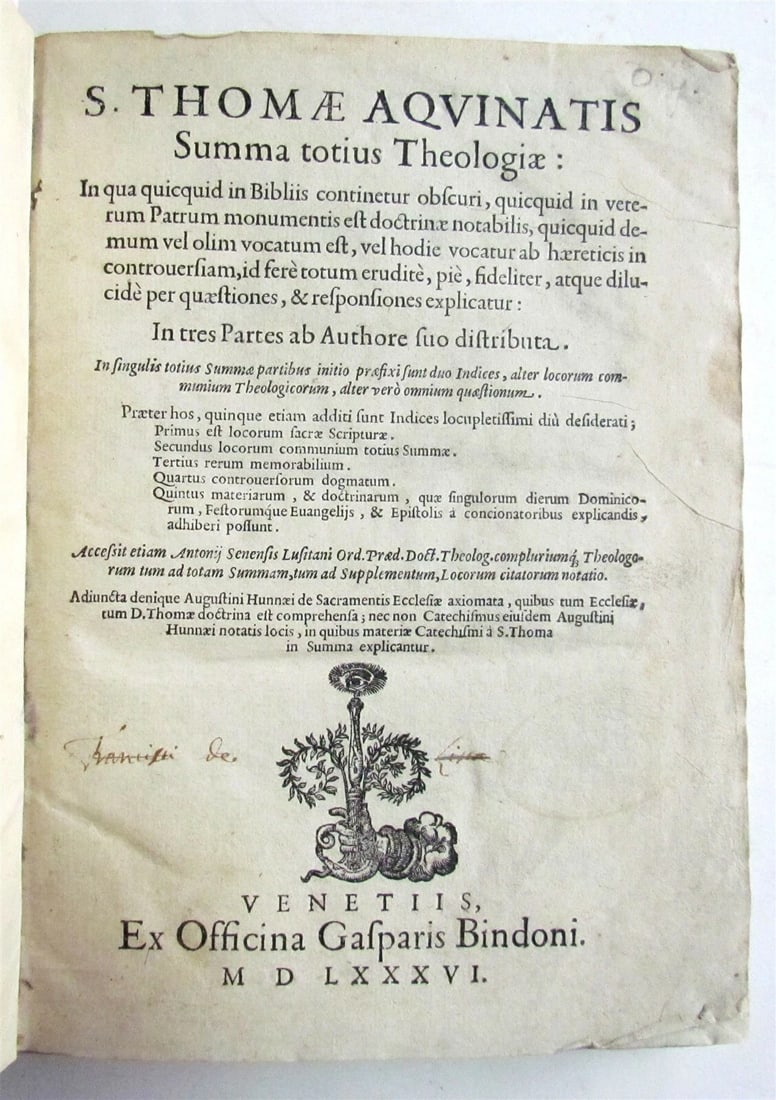 S. THOMÆ AQVINATIS
Summa totius Theologiæ :
In qua quicquid in Bibliis continetur obſcuri, quicquid in vete-
rum Patrum monumentis eſt doctrinæ notabilis, quicquid de-
mum vel olim vocatum eſt, vel hodie vocatur ab hæreticis in
controuerſiam, id ferè totum eruditè, piè, fideliter, atque dilu-
cidè per quæſtiones, & reſponſiones explicatur :
In tres Partes ab Authore ſuo diſtributa.
In ſingulis totius Summæ partibus initio præfixi ſunt duo Indices, alter locorum com-
munium Theologicorum, alter verò omnium quæſtionum.
Præter hos, quinque etiam additi ſunt Indices locupletiſſimi diù deſiderati;
Primus eſt locorum ſacræ Scripturæ.
Secundus locorum communium totius Summæ.
Tertius rerum memorabilium.
Quartus controuerſorum dogmatum.
Quintus materiarum, & doctrinarum, quæ ſingulorum dierum Dominico-
rum, Feſtorumque Euangelijs, & Epiſtolis à concionatoribus explicandis,
adhiberi poſſunt.
Acceſſit etiam Antonij Senenſis Luſitani Ord. Præd. Doct. Theolog. compluriumq́; Theologo-
rum tum ad totam Summam, tum ad Supplementum, Locorum citatorum notatio.
Adiuncta denique Auguſtini Hunnæi de Sacramentis Eccleſiæ axiomata, quibus tum Eccleſiæ,
tum D. Thomæ doctrina eſt comprehenſa; nec non Catechiſmus eiuſdem Auguſtini
Hunnæi notatis locis, in quibus materiæ Catechiſmi à S. Thoma
in Summa explicantur.
de
VENETIIS,
Ex Officina Gaſparis Bindoni.
M D LXXXVI.